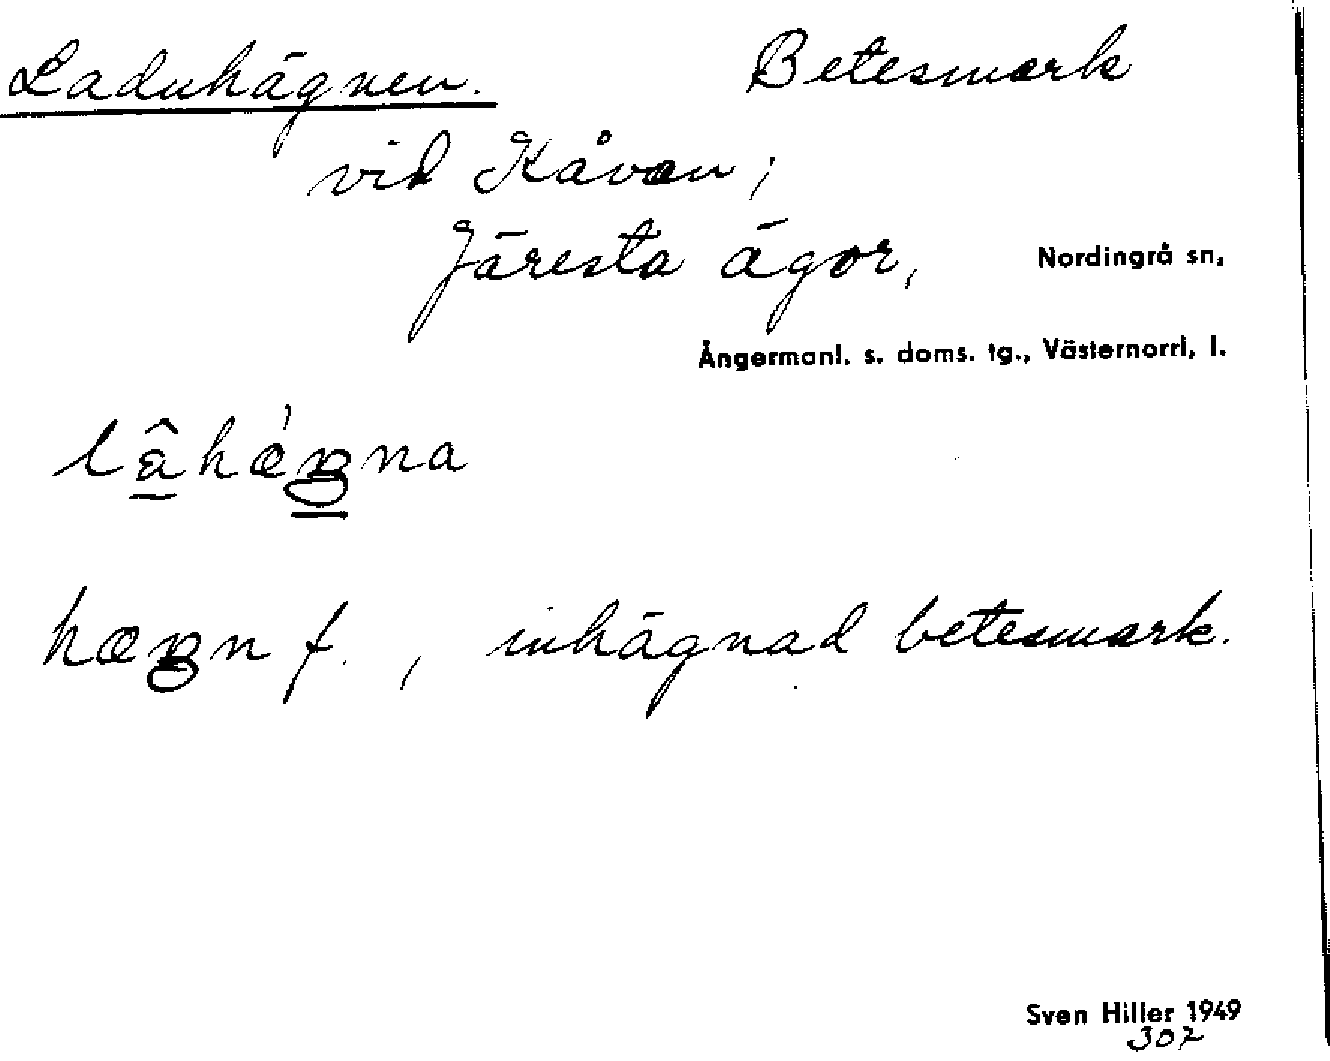 Laduhägnen. Betesmark
vid Kåvan;
Järesta ägor, Nordingrå sn,
Ångermanl. s. doms. tg., Västernorrl, l.
lâhæ̀ŋna
hæŋn f., inhägnad betesmark.
Sven Hiller 1949
307